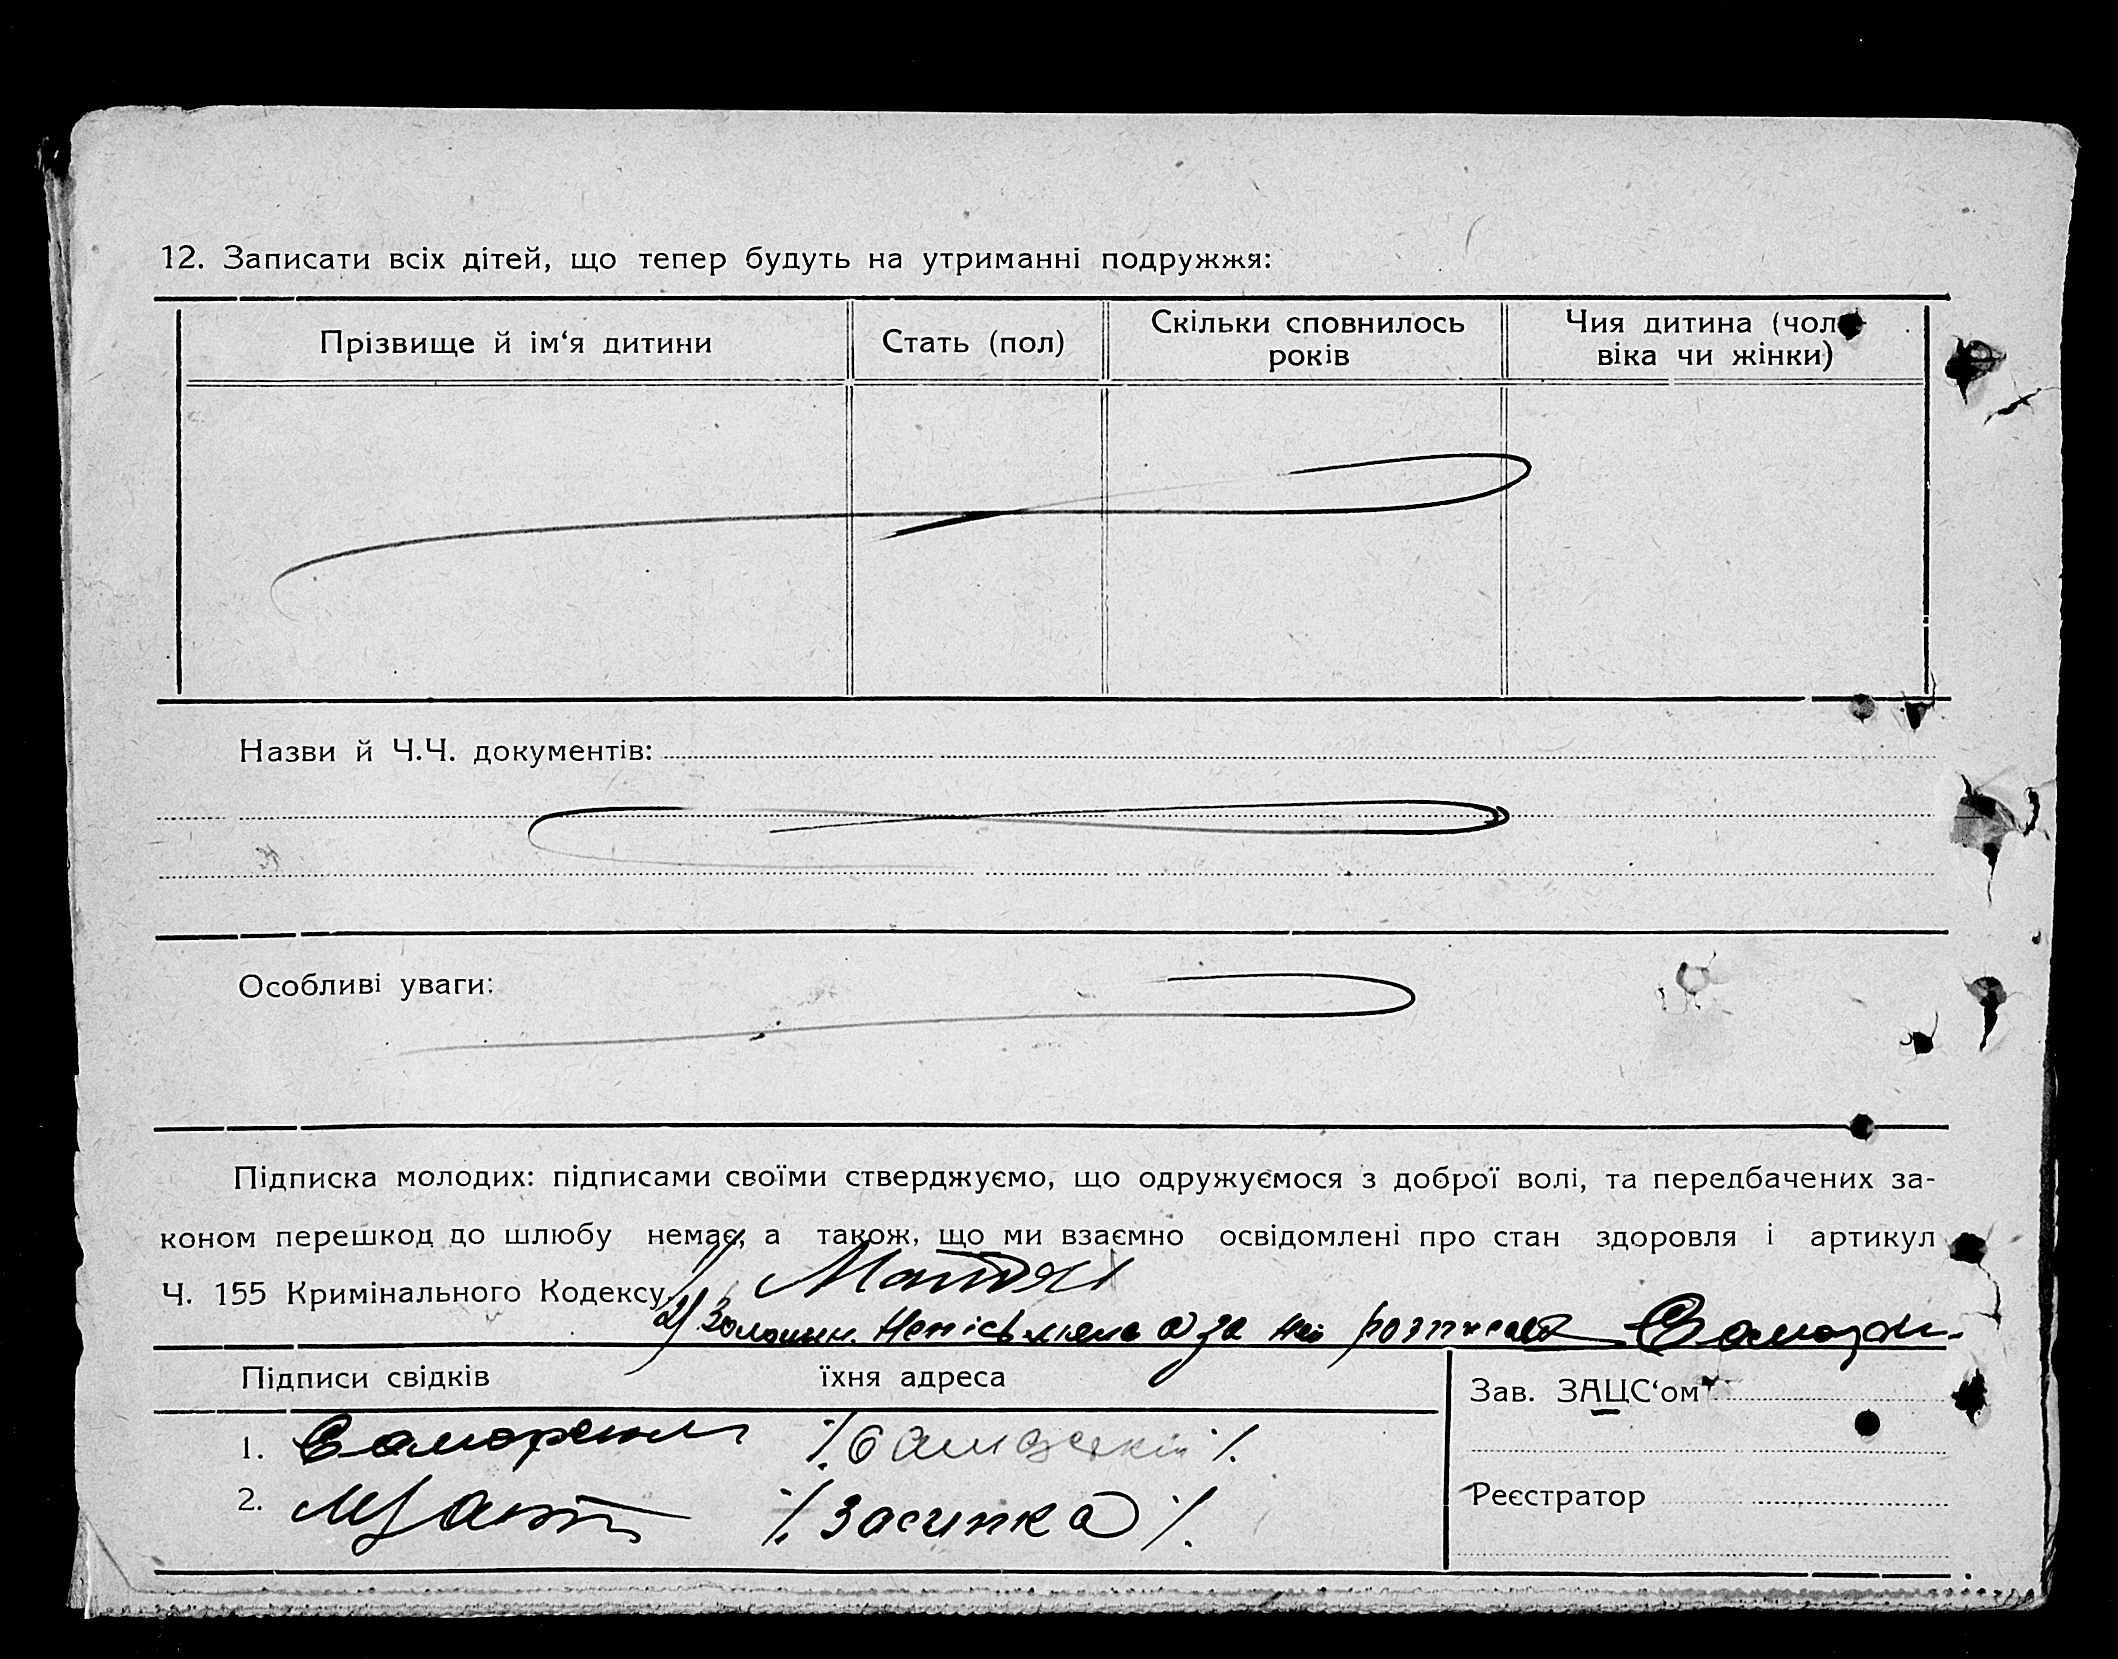 12. Записати всіх дітей, що тепер будуть на утриманні подружжя:
Прізвище й ім‘я дитини
Стать (пол)
Скільки сповнилось
років
Чия дитина (чол
віка чи жінки)
Назви й Ч.Ч. документів:
Особливі уваги:
Підписка молодих: підписами своїми стверджуємо, що одружуємося з доброї волі, та передбачених за-
коном перешкод до шлюбу немає, а також, що ми взаємно освідомлені про стан здоровля і артикул
Ч. 155 Кримінального Кодексу
2) а за неї
Підписи свідків
їхня адреса
1.
2. Засипка
Зав. ЗАЦС‘ом
Реєстратор